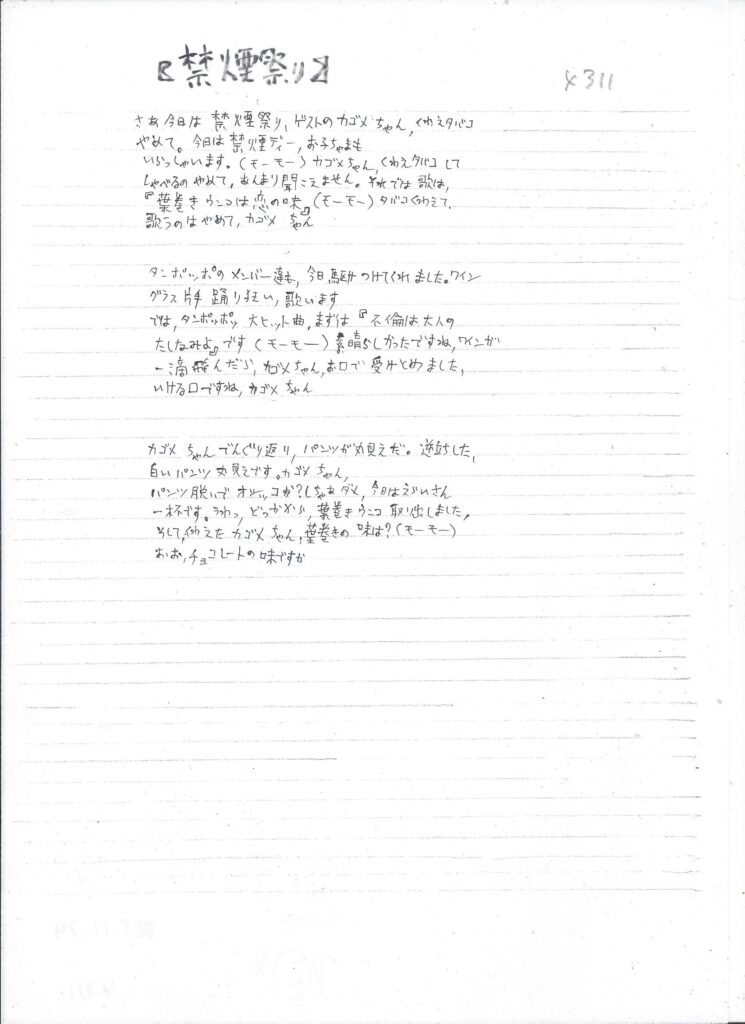 『禁煙祭り』
4311
さあ今日は禁煙祭り、ゲストのカゴメちゃん、くわえタバコ
やめて。今日は禁煙ディー、お子ちゃまも
いらっしゃいます。(モーモー)カゴメちゃん、くわえタバコして
しゃべるのやめて、あんまり聞こえません。それでは歌は、
『葉巻きウンコは恋の味』(モーモー)タバコくわえて、
歌うのはやめて、カゴメちゃん
タンポッポのメンバー達も、今日駆けつけてくれました。ワイン
グラス片手踊り狂い、歌います
では、タンポッポッ大ヒット曲、まずは『不倫は大人の
たしなみよ』です(モーモー)素晴らしかったですね、ワインが
一滴飛んだら、カゴメちゃん、お口で受けとめました、
いける口ですね、カゴメちゃん
カゴメちゃんでんぐり返り、パンツが丸見えだ。逆立ちした、
白いパンツ丸見えです。カゴメちゃん、
パンツ脱いでオシッコか?しちゃぁダメ、今日はえらいさん
一杯です。うわっ、どっからか、葉巻きウンコ取出しました、
そして、くわえたカゴメちゃん、葉巻きの味は?(モーモー)
おお、チョコレートの味ですか
R5.11.29
4311